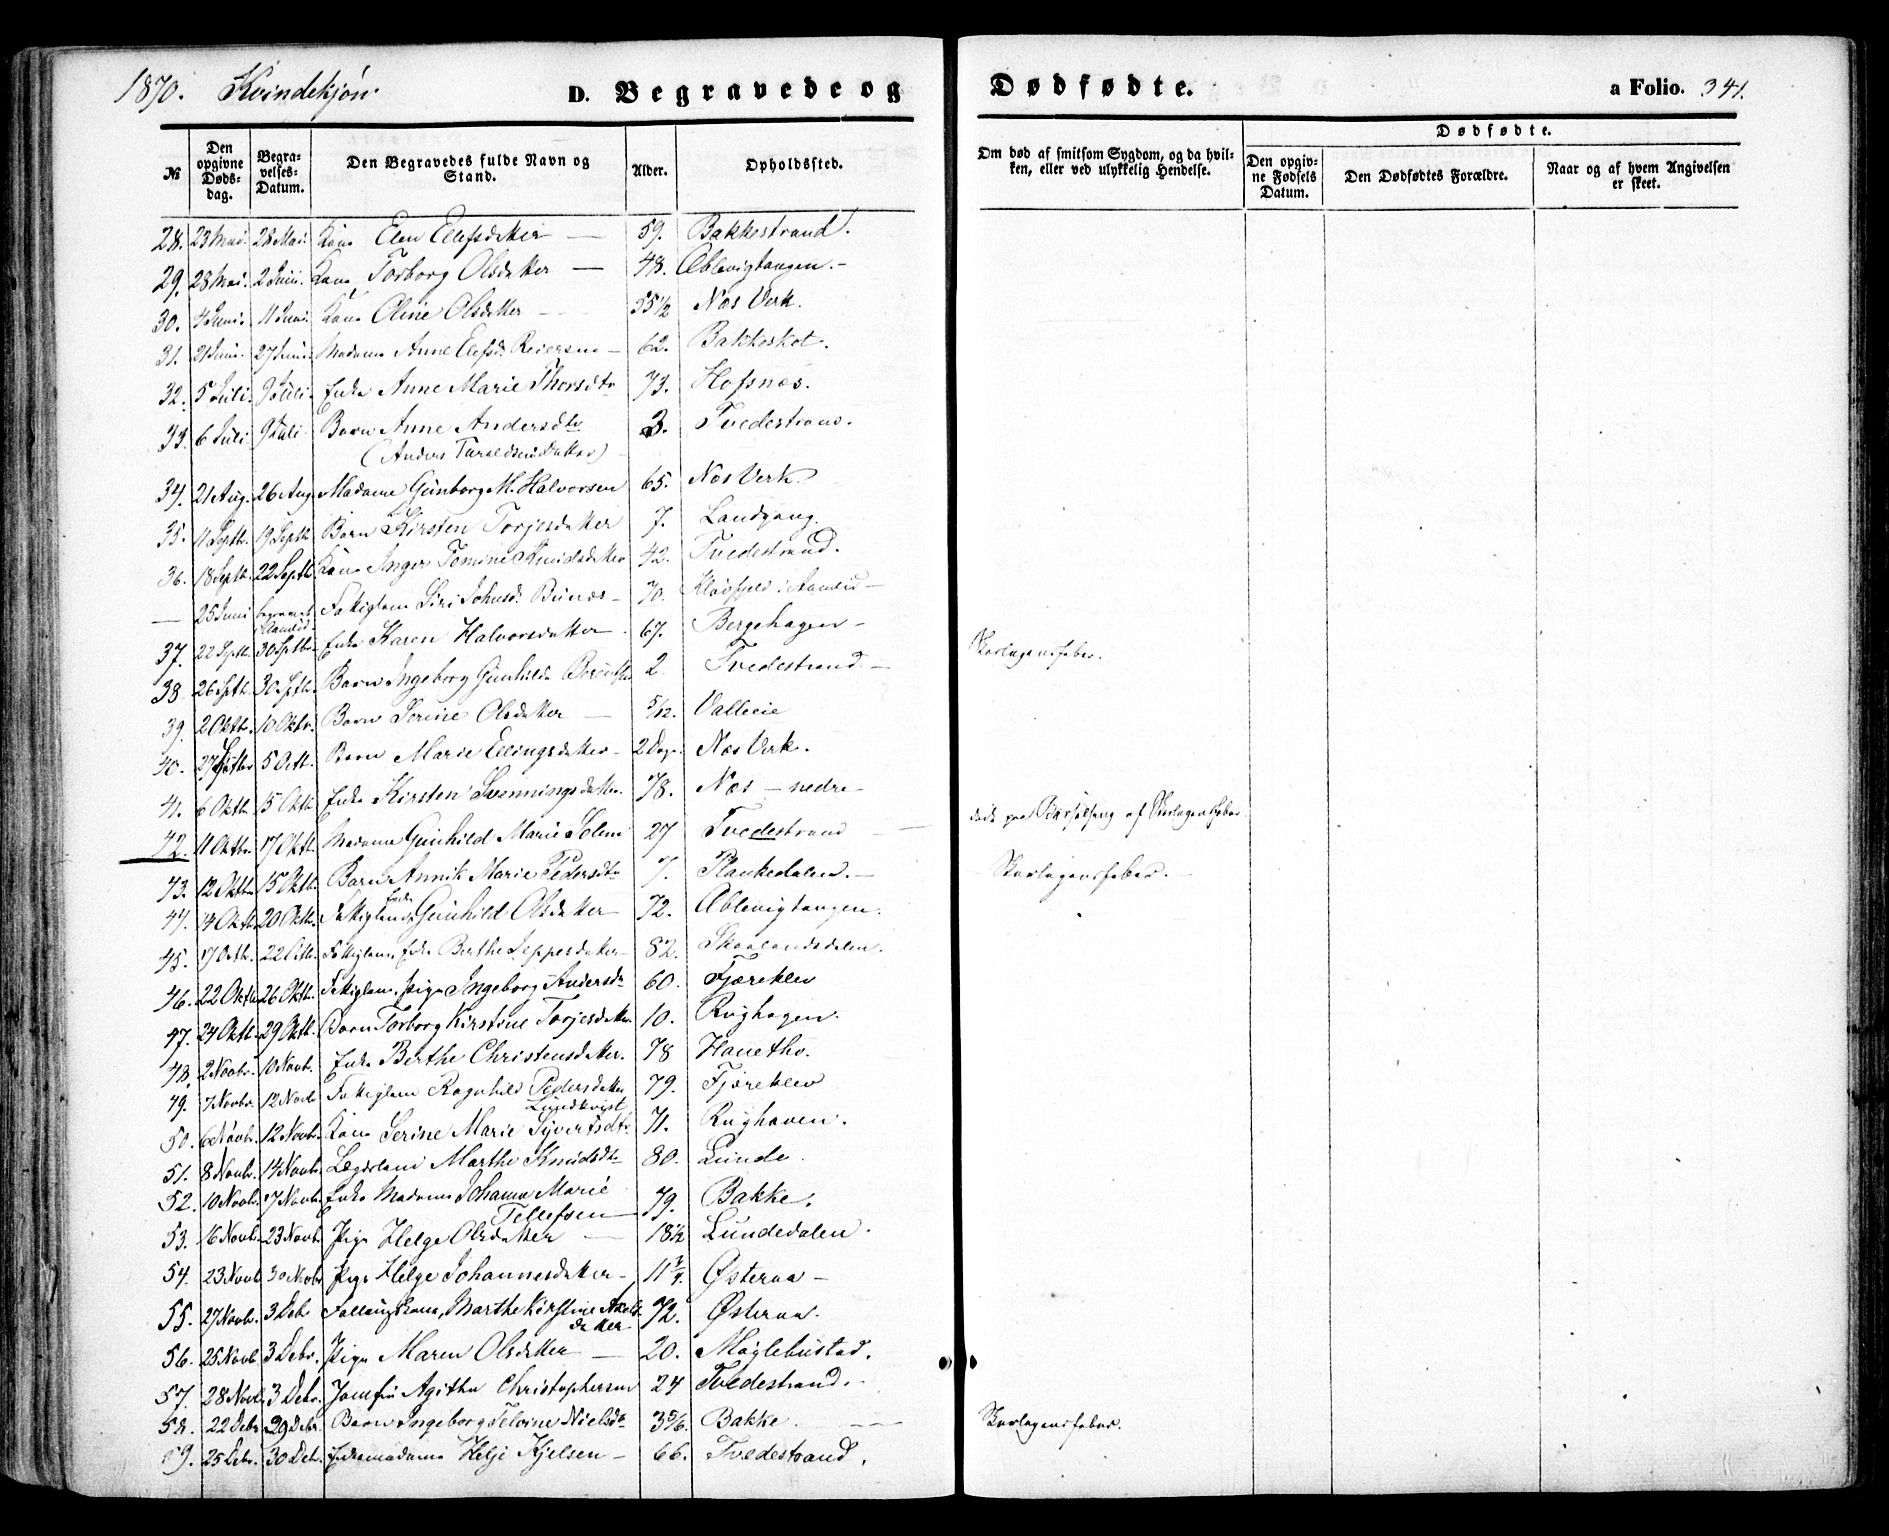 1870. Kvindekjøn. D. Begravede og Dødfødte. a Folio. 341.
Dødfødte.
№ Den opgivne Døds-dag. Begra-velses-Datum. Den Begravedes fulde Navn og Stand. Alder. Opholdssted. Om død af smitsom Sygdom, og da hvil-ken, eller ved ulykkelig Hendelse. Den opgiv-ne Fødsels Datum. Den Dødfødtes Forældre. Naar og af hvem Angivelsen er skeet.
28. 23 Mai. 28 Mai. Kone Elen Elefsdatter — 59. Bakkestrand.
29. 28 Mai. 2 Juni. Kone Torborg Olsdatter — 48. Ablevigtangen. –
30. 4 Juni. 11 Juni. Kone Oline Olsdatter 55 1/2 Næs Verk.
31. 21 Juni. 27 Juni. Madame Anne Elefsd. Reiersen – 62. Bakkeskot.
32. 5 Juli. 9 Juli. Enke Anne Marie Thorsdtr 73. Hofsnæs.
33. 6 Juli 9 Juli Barn Anne Andersdtr 3. Tvedestrand.
(Anders Taraldsens Datter)
34. 21 Aug. 26 Aug. Madame Gunborg M. Halvorsen 65. Næs Verk.
35. 11 Septb. 19 Septb. Barn Kirsten Torjesdatter 7. Landgang.
36. 18 Septb. 22 Septb. Kone Inger Tomine Knudsdatter 42. Tvedestrand.
— 25 Juni begravet i Aamlid. Fattiglem Siri Johnsd. Bunes – 70. Kløvfjeld i Aamlid –
37. 22 Septb. 30 Septbr. Enke Karen Halvorsdatter 67. Bergehagen –
38 26 Septb. 30 Septb. Barn Ingeborg Gunhilde 2 Tvedestrand – Skarlagensfeber.
39. 2 Oktbr. 10 Oktbr. Barn Serine Olsdatter — 5/12. Valleeie
40. 27 Septbr 5 Octb. Barn Marie Ellingsdatter – 2 Dage. Næs Verk.
41. 6 Oktb. 15 Oktb. Enke Kirsten Svenningsdatter. 78. Næs – nedre –
42. 11 Oktbr. 17 Oktb. Madame Gunhild Marie Solem 27 Tvedestrand — døde paa Barselseng af Skarlagensfeber.
43. 12 Oktbr. 15 Oktb. Barn Annik Marie Pedersdtr 7. Plankedalen. – Skarlagensfeber. –
44. 14 Oktb. 20 Oktb. Fattiglem, Enke Gunhild Olsdatter 72. Ablevigtangen.
45. 17 Octb. 22 Octb. Fattiglem, Enke Berthe Jeppesdatter – 82. Skaalandsdalen.
46. 22 Oktb. 26 Oktb. Fattiglem, Pige Ingeborg Andersdtr 60. Fjæreklev
47. 24 Oktb. 29 Oktb. Barn Torborg Kirstine Torjesdatter. 10. Rughagen.
48. 2 Novbr. 10 Novb. Enke Berthe Christensdatter. 78 Hanetho.
49. 7 Novbr. 12 Novb Fattiglem Ragnhild Pedersdatter 79. Fjæreklev
Lundkvist
50. 6 Novb. 12 Novb. Kone Serine Marie Syvertsdtr 71. Rughaven.
51. 8 Novb. 14 Novb. Lægdslem Marthe Knudsdtr 80. Lunde.
52. 10 Novb. 17 Novb. Enke Madame Johanne Marie 79. Bakke.
Tellefsen —
53. 16 Novb. 23 Novb. Pige Helge Olsdatter — 18 1/2 Lundedalen.
54. 23 Novb. 30 Novbr. Pige Helge Johannesdatter – 11 3/4. Østeraa –
55. 27 Novb. 3 Debr Marthe Kirstine Axels- 72. Østeraa.
datter
56. 25 Novb. 3 Debr. Pige Maren Olsdatter — 20. Møglebustad.
57. 28 Novb. 3 Debr. Jomfru Agithe Christophersen 24 Tvedestrand.
58. 22 Debr. 29 Debr. Barn Ingeborg Nielsdtr 3 5/6. Bakke. Skarlagensfeber.
59. 25 Debr. 30 Debr. Enkemadame Helje Kjelsen – 66. Tvedestrand.